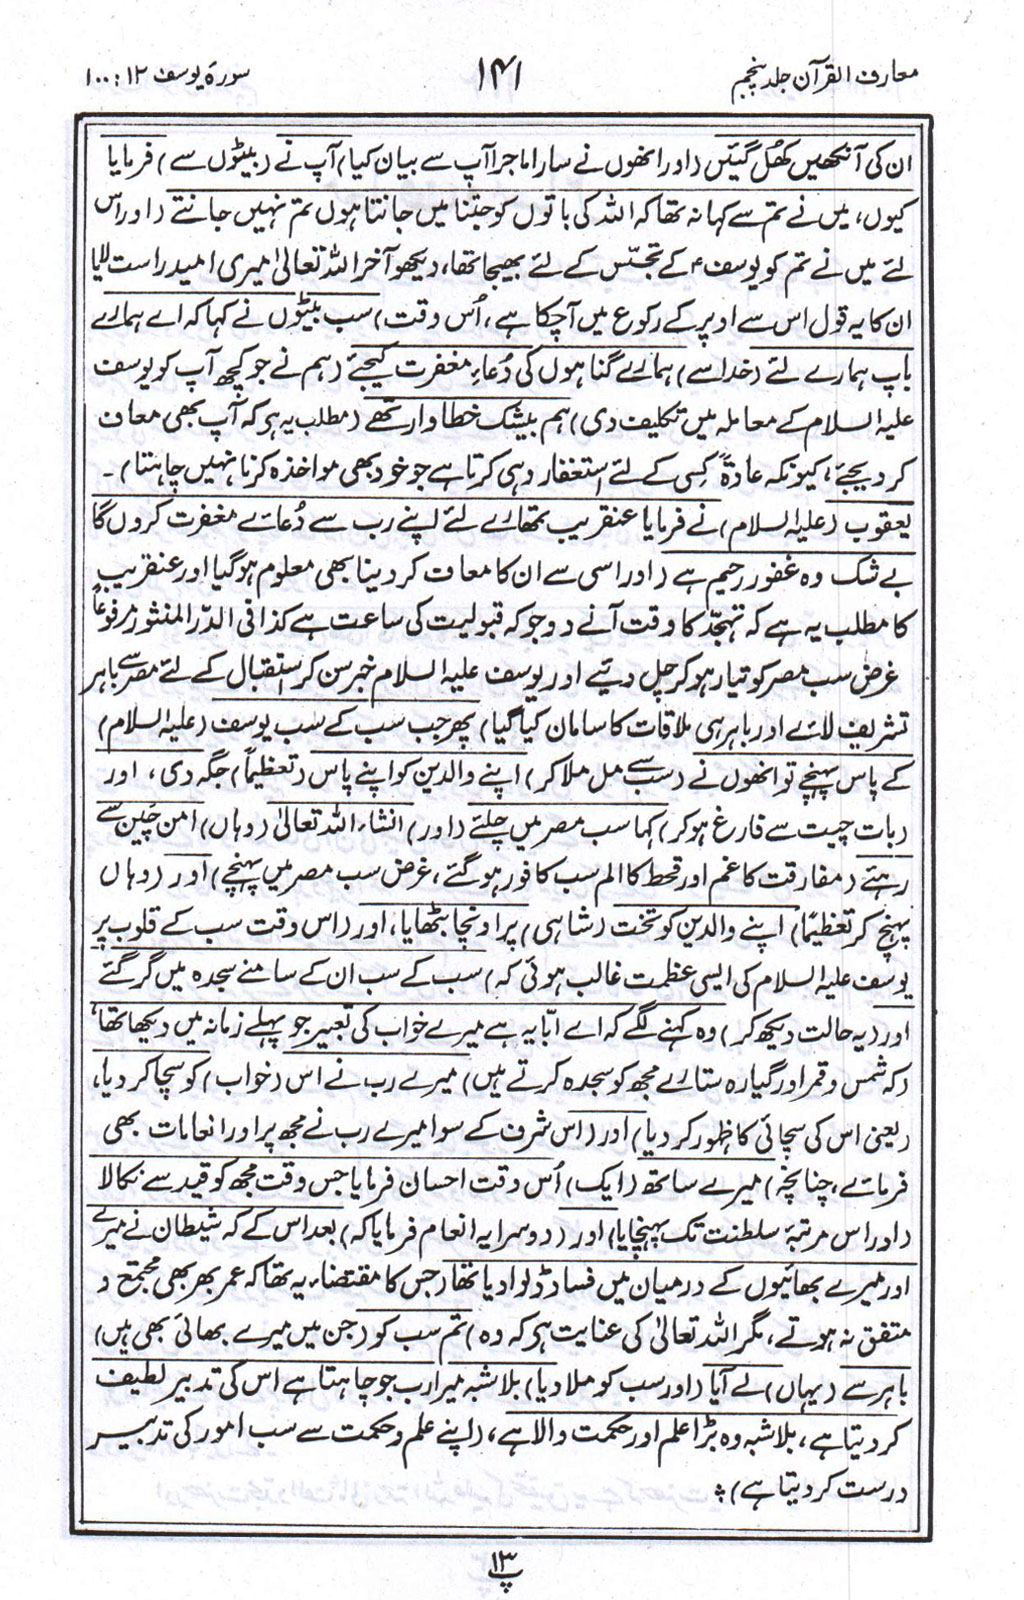 معارف القرآن جلد پنجم
۱۴۱
سورۃ یوسف ۱۲ : ۱۰۰
ان کی آنکھیں کھل گئیں (اور انھوں نے سارا ماجرا آپ سے بیان کیا) آپ نے (بیٹوں سے) فرمایا
کیوں، میں نے تم سے کہا نہ تھا کہ اللہ کی باتوں کو جتنا میں جانتا ہوں تم نہیں جانتے (اور اس
لئے میں نے تم کو یوسفؑ کے تجسّس کے لئے بھیجا تھا، دیکھو آخر اللہ تعالیٰ میری امید راست لایا
ان کا یہ قول اس سے اوپر کے رکوع میں آچکا ہے، اُس وقت) سب بیٹوں نے کہا کہ اے ہمارے
باپ ہمارے لئے (خدا سے) ہمارے گناہوں کی دُعاءِ مغفرت کیجئے (ہم نے جو کچھ آپ کو یوسف
علیہ السلام کے معاملہ میں تکلیف دی) ہم بیشک خطاوار تھے (مطلب یہ ہے کہ آپ بھی معاف
کر دیجئے، کیونکہ عادۃً کسی کے لئے استغفار وہی کرتا ہے جو خود بھی مواخذہ کرنا نہیں چاہتا)۔
یعقوب (علیہ السلام) نے فرمایا عنقریب تمھارے لئے اپنے رب سے دُعائے مغفرت کروں گا
بے شک وہ غفور رحیم ہے (اور اسی سے ان کا معاف کر دینا بھی معلوم ہوگیا اور عنقریب
کا مطلب یہ ہے کہ تہجّد کا وقت آنے دو جو کہ قبولیت کی ساعت ہے کذا فی الدّر المنثور مرفوعاً
غرض سب مصر کو تیار ہو کر چل دیئے اور یوسف علیہ السلام خبر سن کر استقبال کے لئے مصر سے باہر
تشریف لائے اور باہر ہی ملاقات کا سامان کیا گیا) پھر جب سب کے سب یوسف (علیہ السلام)
کے پاس پہنچے تو انھوں نے (سب سے مل ملا کر) اپنے والدین کو اپنے پاس (تعظیماً) جگہ دی، اور
(بات چیت سے فارغ ہو کر) کہا سب مصر میں چلئے (اور) انشاء اللہ تعالیٰ (وہاں) امن چین سے
رہئے (مفارقت کا غم اور قحط کا الم سب کافور ہو گئے، غرض سب مصر میں پہنچے) اور (وہاں
پہنچ کر تعظیماً) اپنے والدین کو تخت (شاہی) پر اونچا بٹھایا، اور (اس وقت سب کے قلوب پر
یوسف علیہ السلام کی ایسی عظمت غالب ہوئی کہ) سب کے سب ان کے سامنے سجدہ میں گر گئے
اور (یہ حالت دیکھ کر) وہ کہنے لگے کہ اے ابّا یہ ہے میرے خواب کی تعبیر جو پہلے زمانہ میں دیکھا تھا،
(کہ شمس و قمر اور گیارہ ستارے مجھ کو سجدہ کرتے ہیں) میرے رب نے اس (خواب) کو سچا کر دیا،
(یعنی اس کی سچائی کا ظہور کر دیا) اور (اس شرف کے سوا میرے رب نے مجھ پر اور انعامات بھی
فرمائے، چنانچہ) میرے ساتھ (ایک) اُس وقت احسان فرمایا جس وقت مجھ کو قید سے نکالا
(اور اس مرتبۂ سلطنت تک پہنچایا) اور (دوسرا یہ انعام فرمایا کہ) بعد اس کے کہ شیطان نے میرے
اور میرے بھائیوں کے درمیان میں فساد ڈلوا دیا تھا (جس کا مقتضاء یہ تھا کہ عمر بھر بھی مجتمع و
متفق نہ ہوتے، مگر اللہ تعالیٰ کی عنایت ہے کہ وہ) تم سب کو (جن میں میرے بھائی بھی ہیں)
باہر سے (یہاں) لے آیا (اور سب کو ملا دیا) بلاشبہ میرا رب جو چاہتا ہے اس کی تدبیر لطیف
کر دیتا ہے، بلاشبہ وہ بڑا علم اور حکمت والا ہے، (اپنے علم و حکمت سے سب امور کی تدبیر
درست کر دیتا ہے) ؛
پ۱۳